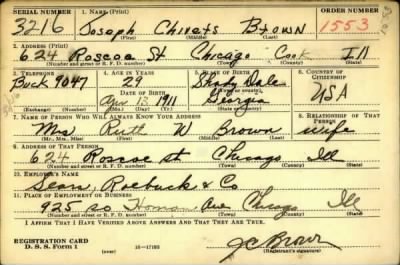 SERIAL NUMBER 1. NAME (Print) ORDER NUMBER
3216 Joseph Brown 1553
(First) (Middle) (Last)
2. ADDRESS (Print)
624 Roscoe St Chicago Cook Ill
(Number and street or R. F. D. number) (Town) (County) (State)
3. TELEPHONE 4. AGE IN YEARS 5. PLACE OF BIRTH 6. COUNTRY OF CITIZENSHIP
Buck 9047 29 Shady Dale
DATE OF BIRTH (Town or county)
Apr 13 1911 Georgia USA
(Exchange) (Number) (Mo.) (Day) (Yr.) (State or country)
7. NAME OF PERSON WHO WILL ALWAYS KNOW YOUR ADDRESS 8. RELATIONSHIP OF THAT PERSON
Mrs Ruth W Brown wife
(Mr., Mrs., Miss) (First) (Middle) (Last)
9. ADDRESS OF THAT PERSON
624 Roscoe st Chicago Ill
(Number and street or R. F. D. number) (Town) (County) (State)
10. EMPLOYER'S NAME
Sears, Roebuck & Co
11. PLACE OF EMPLOYMENT OR BUSINESS
925 so Homan Ave Chicago Ill
(Number and street or R. F. D. number) (Town) (County) (State)
I AFFIRM THAT I HAVE VERIFIED ABOVE ANSWERS AND THAT THEY ARE TRUE.
REGISTRATION CARD
D. S. S. Form 1 16—17105 JC Brown
(Registrant's signature)